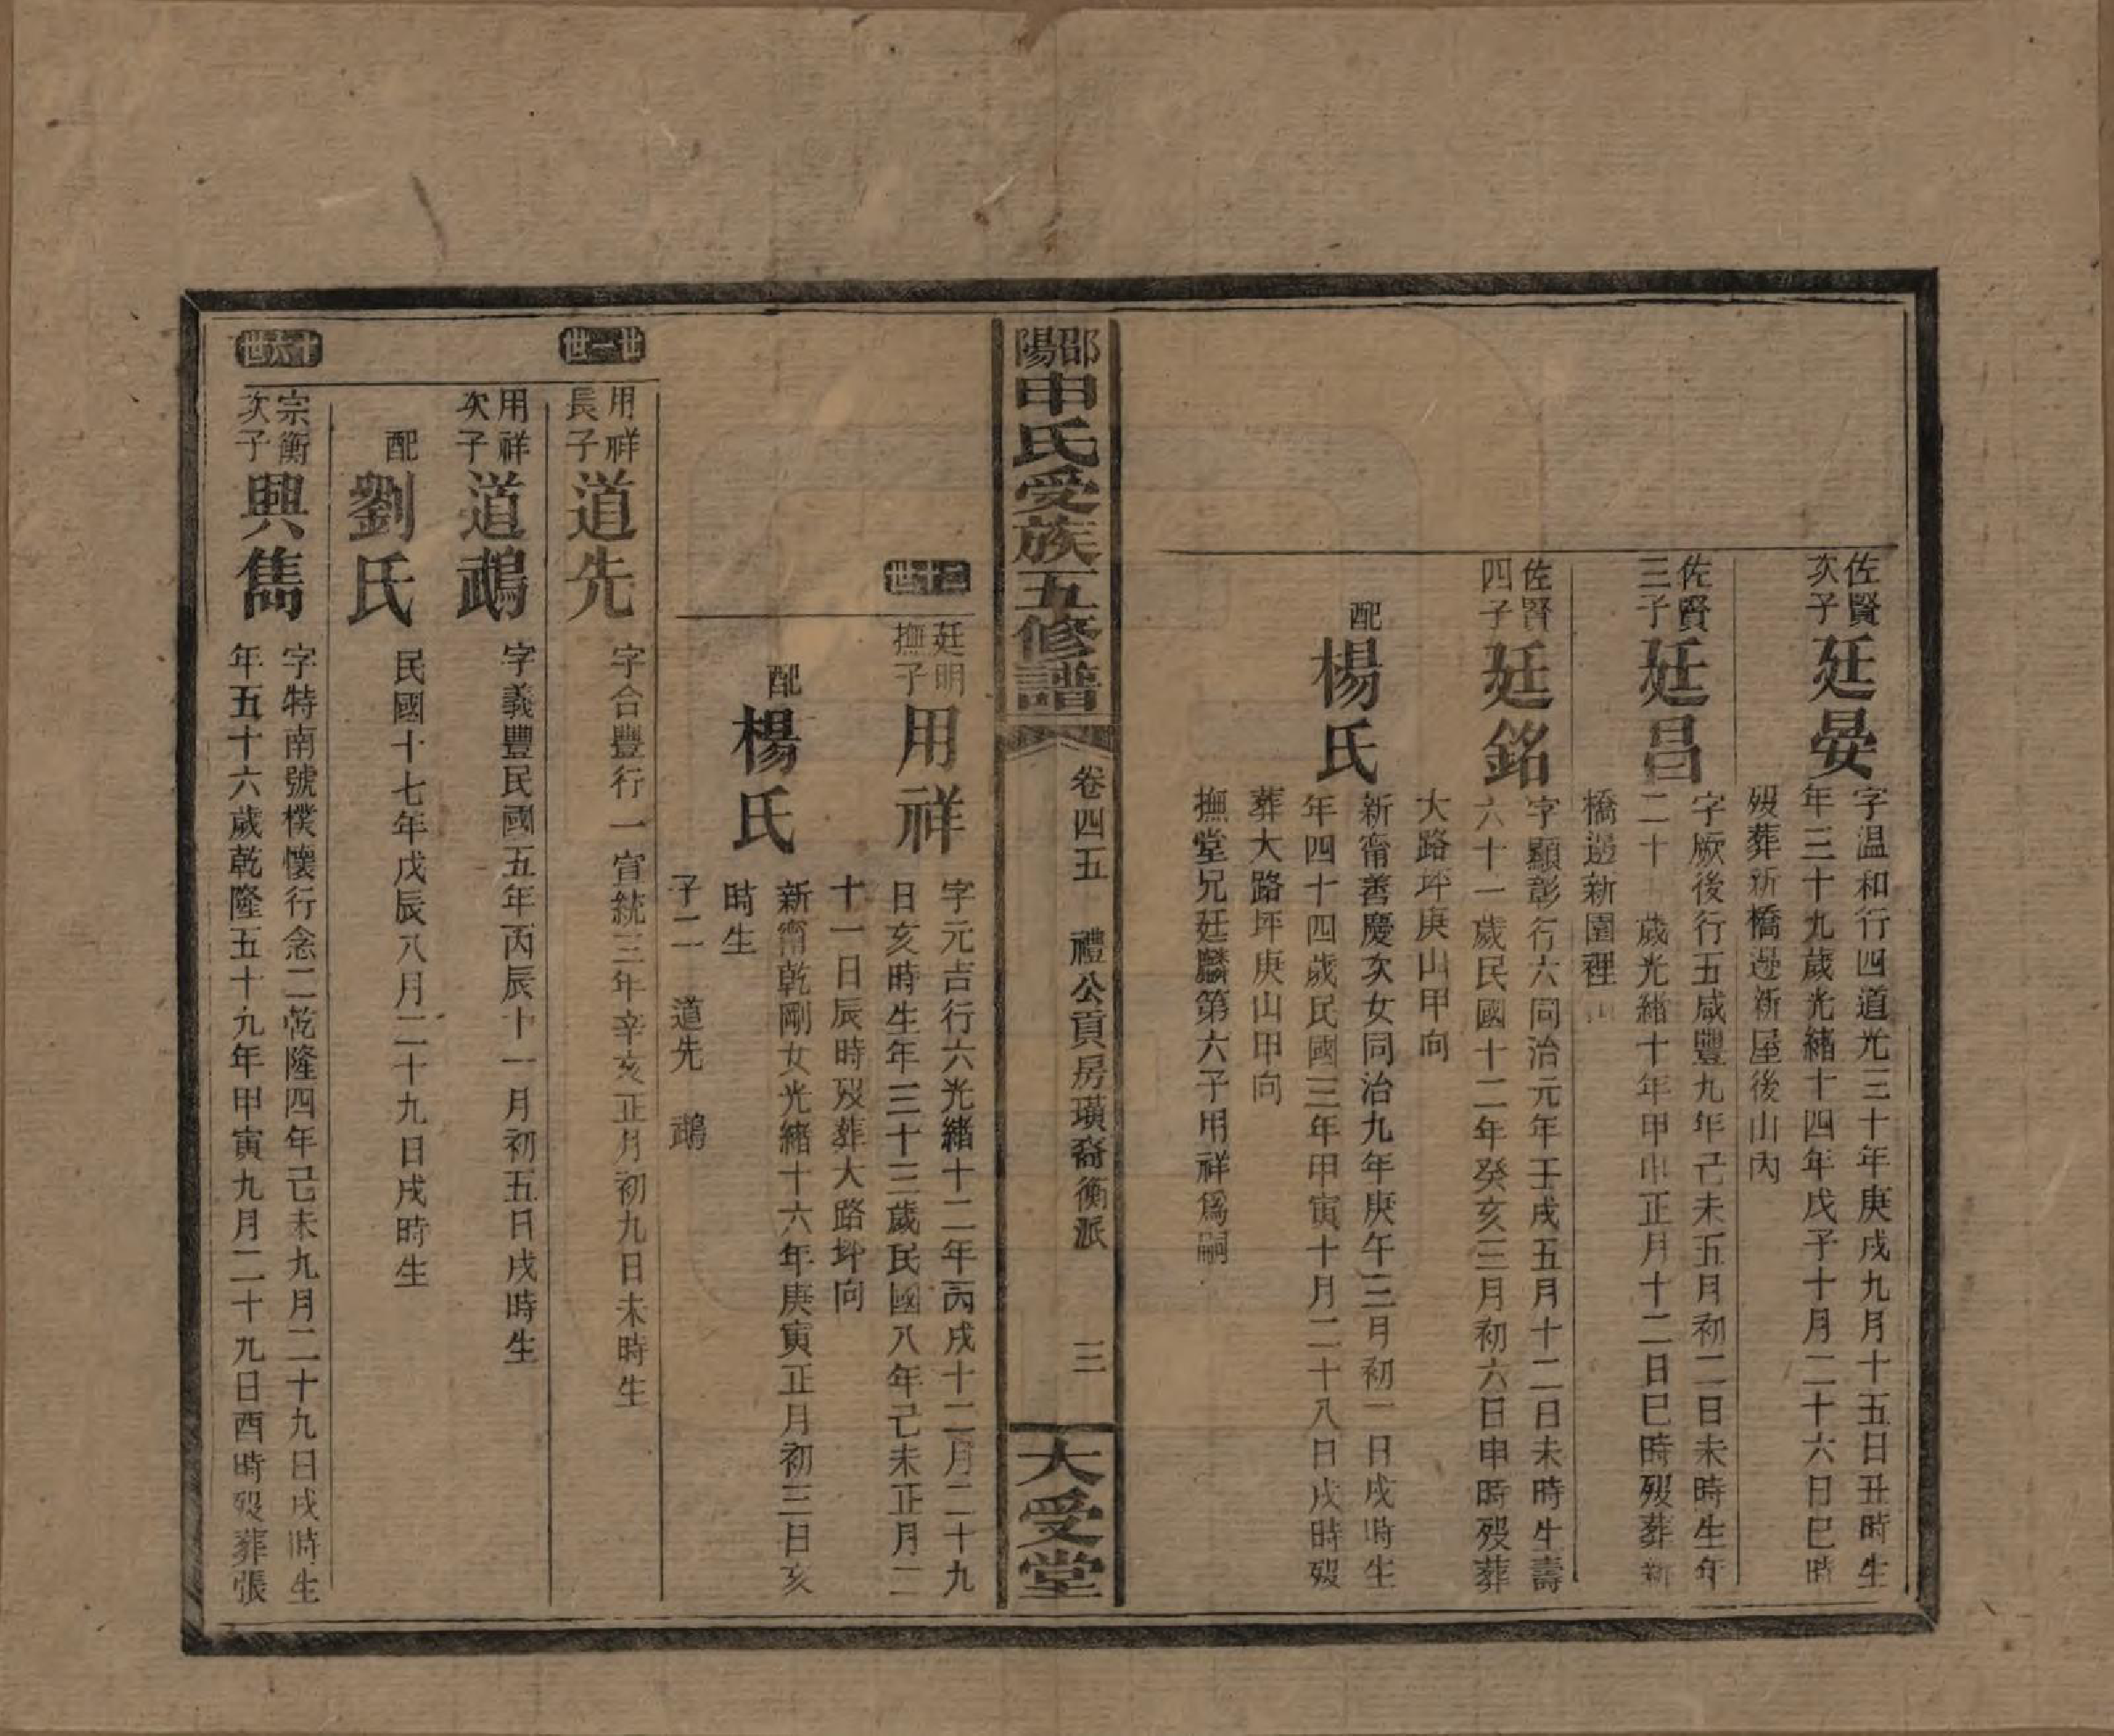 佐賢
次子
廷晏
字温和行四道光三十年庚戌九月十五日丑時生
年三十九歲光緒十四年戊子十月二十六日巳時
歿葬新橋邊新屋後山內
佐賢
三子
廷昌
字厥後行五咸豐九年己未五月初二日未時生年
二十 歲光緒十年甲申正月十二日巳時歿葬新
橋邊新園裡
佐賢
四子
廷銘
字顯彰行六同治元年壬戌五月十二日未時生壽
六十一歲民國十二年癸亥三月初六日申時歿葬
大路坪庚山甲向
配
楊氏
新甯善慶次女同治九年庚午三月初一日戌時生
年四十四歲民國三年甲寅十月二十八日戌時歿
葬大路坪庚山甲向
撫堂兄廷麟第六子用祥爲嗣
邵陽申氏受族五修譜
卷四五 禮公貢房璜裔衡派 三
大受堂
二十世
廷明
撫子
用祥
字元吉行六光緒十二年丙戌十二月二十九
日亥時生年三十三歲民國八年己未正月二
十一日辰時歿葬大路坪向
配
楊氏
新甯乾剛女光緒十六年庚寅正月初三日亥
時生
子二 道先 鵡
廿一世
用祥
長子
道先
字合豐行一宣統三年辛亥正月初九日未時生
用祥
次子
道鵡
字義豐民國五年丙辰十一月初五日戌時生
配
劉氏
民國十七年戊辰八月二十九日戌時生
十六世
宗衡
次子
興雋
字特南號樸懷行念二乾隆四年己未九月二十九日戌時生
年五十六歲乾隆五十九年甲寅九月二十九日酉時歿葬張